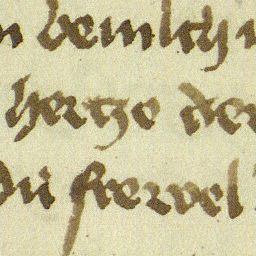 n hemlich
hertze der
du frewel